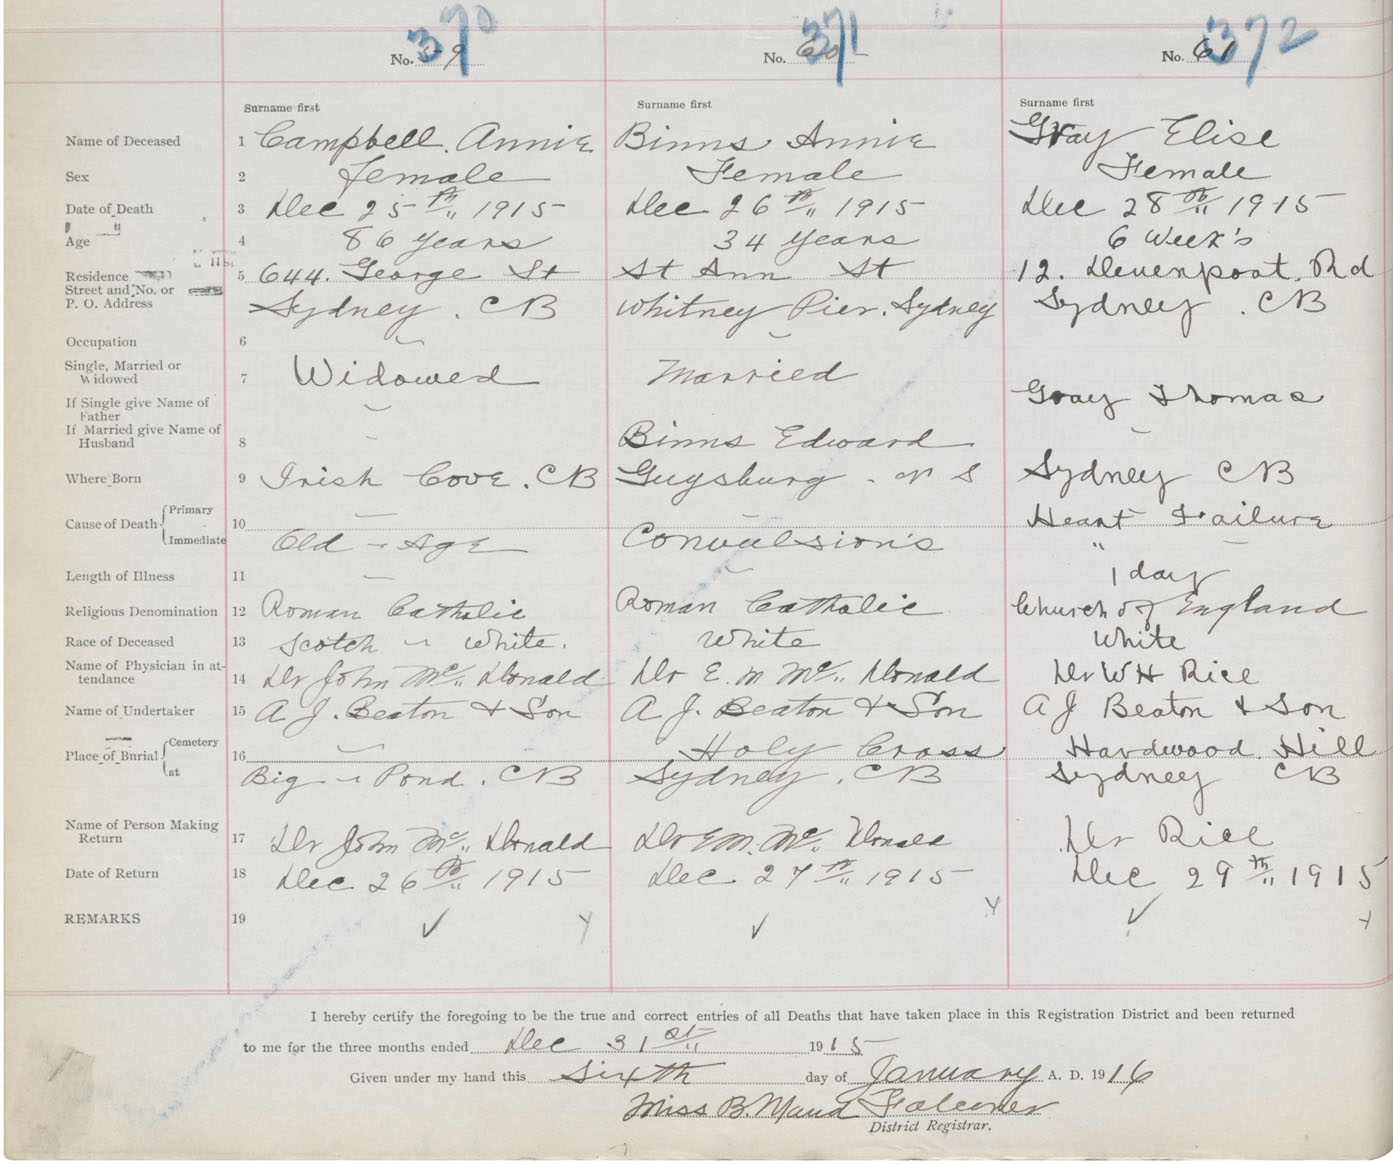 370 371 372
No. 59 No. 60 No. 61
Surname first Surname first Surname first
Name of Deceased 1 Campbell. Annie Binns Annie Gray Elise
Sex 2 Female Female Female
Date of Death 3 Dec 25th 1915 Dec 26th 1915 Dec 28th 1915
Age 4 86 years 34 years 6 Week's
Residence 5 644. George St St Ann St 12. Devenpoat Rd
Street and No. or
P. O. Address Sydney. CB Whitney Pier. Sydney Sydney. CB
Occupation 6
Single, Married or
Widowed 7 Widowed Married
If Single give Name of
Father Gray Thomas
If Married give Name of
Husband 8 Binns Edward
Where Born 9 Irish Cove. CB Guysburg. N S Sydney CB
Cause of Death Primary 10 Heart Failure
Immediate Old - Age Convulsion's "
Length of Illness 11 1 day
Religious Denomination 12 Roman Catholic Roman Catholic Church of England
Race of Deceased 13 Scotch - White. White White
Name of Physician in at-
tendance 14 Dr John Mc Donald Dr E. M Mc Donald Dr W H Rice
Name of Undertaker 15 A J. Beaton & Son A J. Beaton & Son A J Beaton & Son
Place of Burial Cemetery 16 Holy Cross Hardwood Hill
at Big - Pond. CB Sydney. CB Sydney CB
Name of Person Making
Return 17 Dr John Mc Donald Dr E M. Mc Donald Dr Rice
Date of Return 18 Dec 26th 1915 Dec 27th 1915 Dec 29th 1915
REMARKS 19 ✓ ✓ ✓
I hereby certify the foregoing to be the true and correct entries of all Deaths that have taken place in this Registration District and been returned
to me for the three months ended Dec 31st 1915
Given under my hand this Sixth day of January A. D. 1916
Miss B. Maud Falconer
District Registrar.